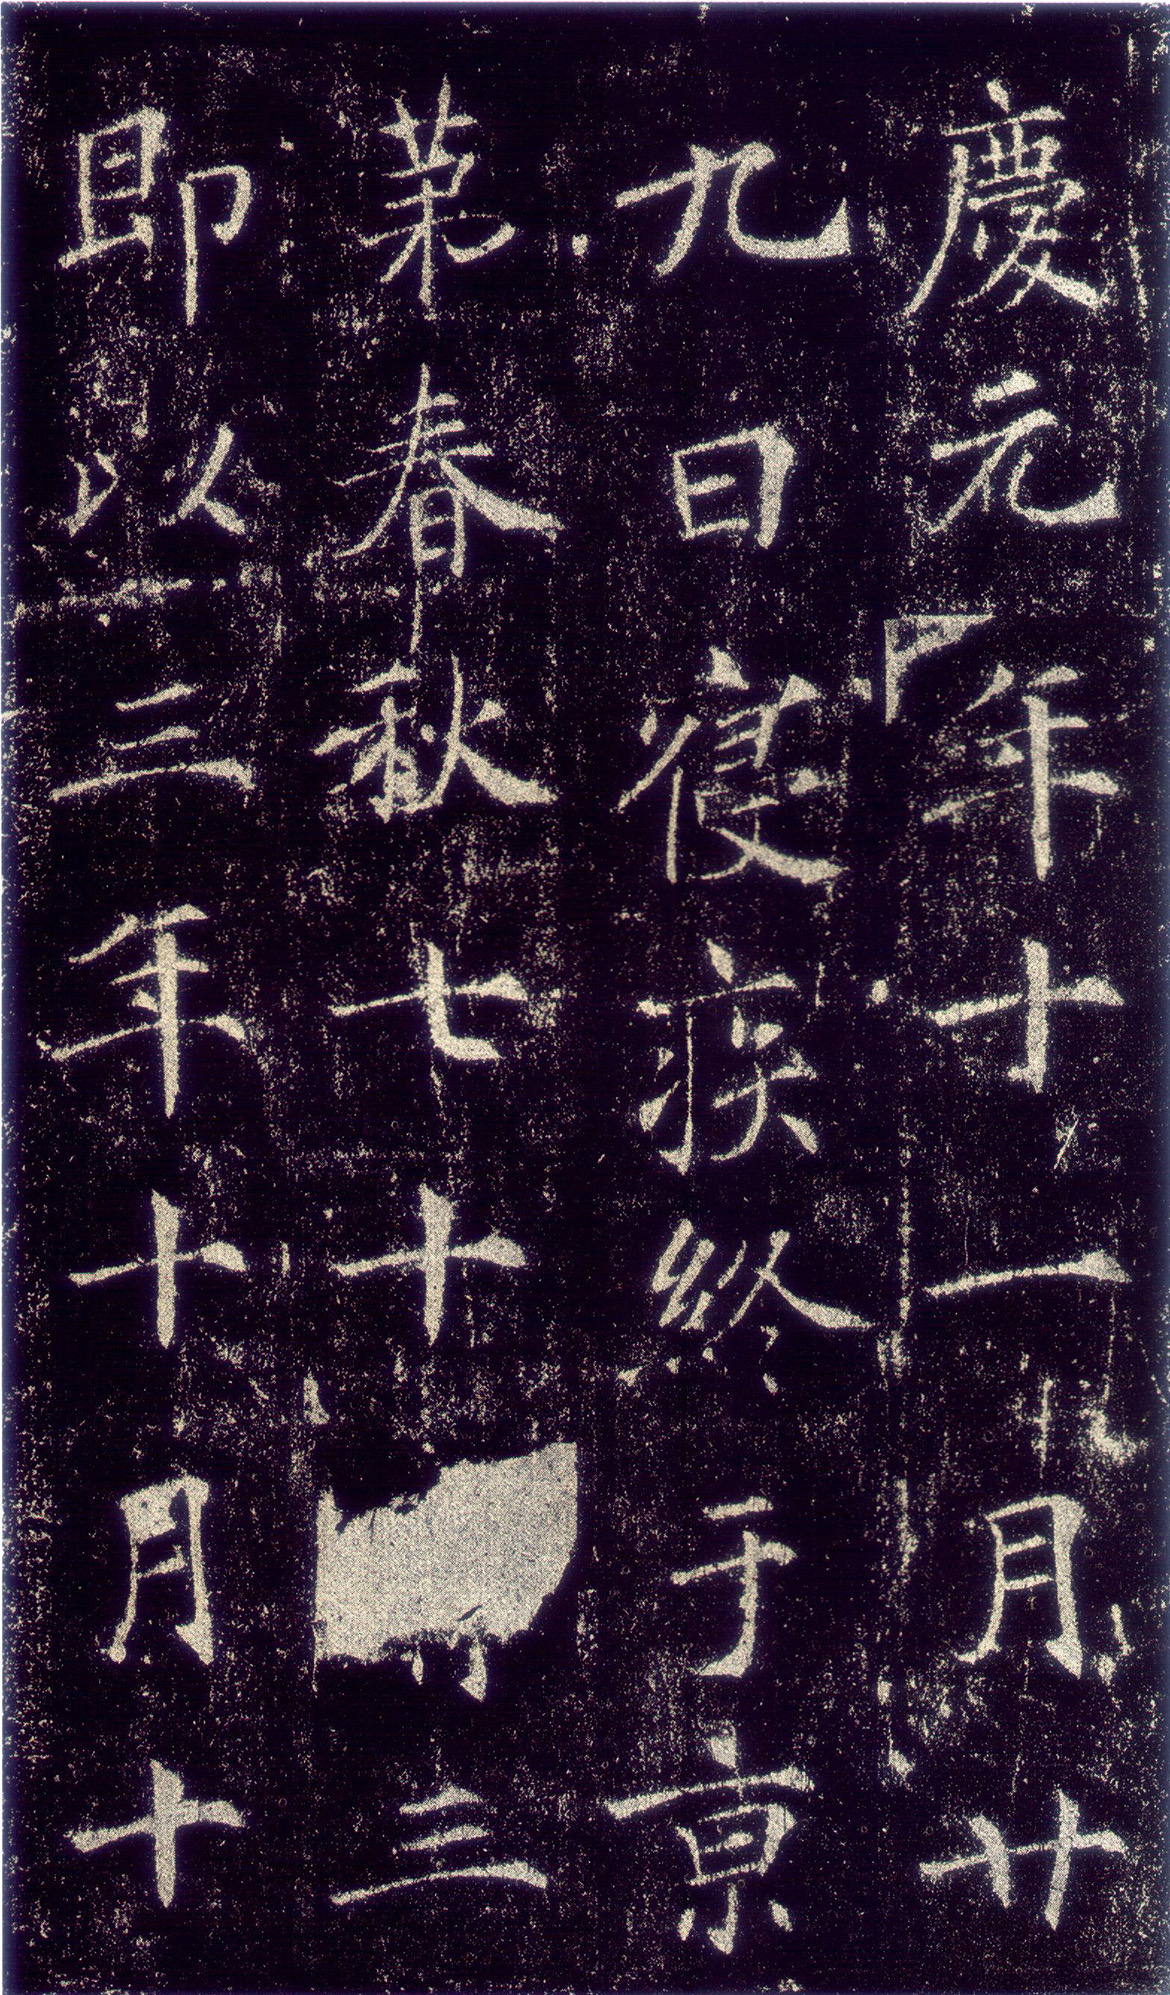 慶元年十一月廿
九日寝疾終于京
苐春秋七十三
即以三年十月十